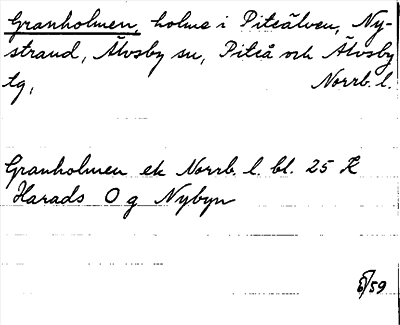 Granholmen, holme i Piteälven, Ny-
strand, Älvsby sn, Piteå och Älvsby
tg, Norrb. l.
Granholmen ek Norrb. l. bl. 25
Harads O g Nybyn
/59